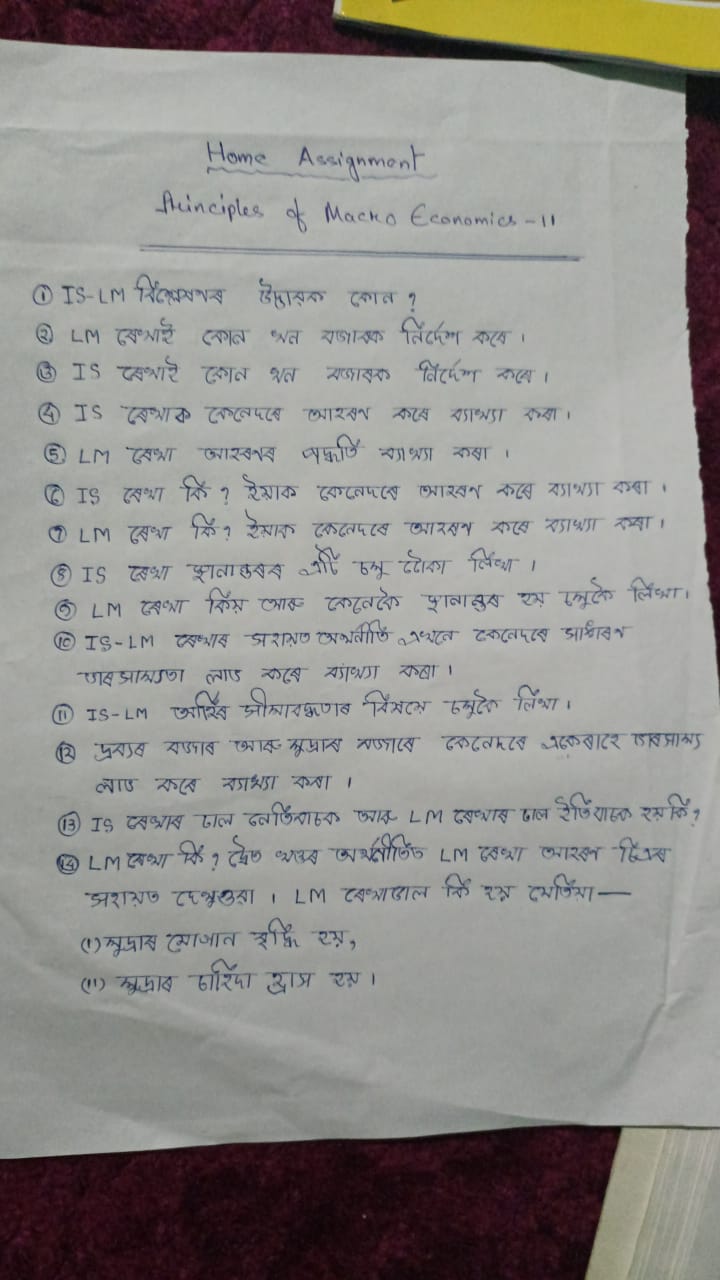 Home Assignment
Principles of Macro Economics - II
① IS-LM বিশ্লেষণৰ উদ্ভাৱক কোন ?
② LM ৰেখাই কোন খন বজাৰক নিৰ্দেশ কৰে ।
③ IS ৰেখাই কোন খন বজাৰক নিৰ্দেশ কৰে ।
④ IS ৰেখাক কেনেদৰে আহৰণ কৰে ব্যাখ্যা কৰা ।
⑤ LM ৰেখা আহৰণৰ পদ্ধতি ব্যাখ্যা কৰা ।
⑥ IS ৰেখা কি ? ইয়াক কেনেদৰে আহৰণ কৰে ব্যাখ্যা কৰা ।
⑦ LM ৰেখা কি ? ইয়াক কেনেদৰে আহৰণ কৰে ব্যাখ্যা কৰা ।
⑧ IS ৰেখা স্থানান্তৰৰ এটি চমু টোকা লিখা ।
⑨ LM ৰেখা কিয় আৰু কেনেকৈ স্থানান্তৰ হয় চমুকৈ লিখা ।
⑩ IS-LM ৰেখাৰ সহায়ত অৰ্থনীতি এখনে কেনেদৰে সাধাৰণ
ভাৰসাম্যতা লাভ কৰে ব্যাখ্যা কৰা ।
⑪ IS-LM আৰ্হিৰ সীমাবদ্ধতাৰ বিষয়ে চমুকৈ লিখা ।
⑫ দ্ৰব্যৰ বজাৰ আৰু মুদ্ৰাৰ বজাৰে কেনেদৰে একেৰাহে ভাৰসাম্য
লাভ কৰে ব্যাখ্যা কৰা ।
⑬ IS ৰেখাৰ ঢাল নেতিবাচক আৰু LM ৰেখাৰ ঢাল ইতিবাচক হয় কি ?
⑭ LM ৰেখা কি ? দ্বৈত খণ্ডৰ অৰ্থনীতিত LM ৰেখা আহৰণ চিত্ৰৰ
সহায়ত দেখুওৱা । LM ৰেখাডাল কি হয় যেতিয়া —
(i) মুদ্ৰাৰ যোগান বৃদ্ধি হয়,
(ii) মুদ্ৰাৰ চাহিদা হ্ৰাস হয় ।